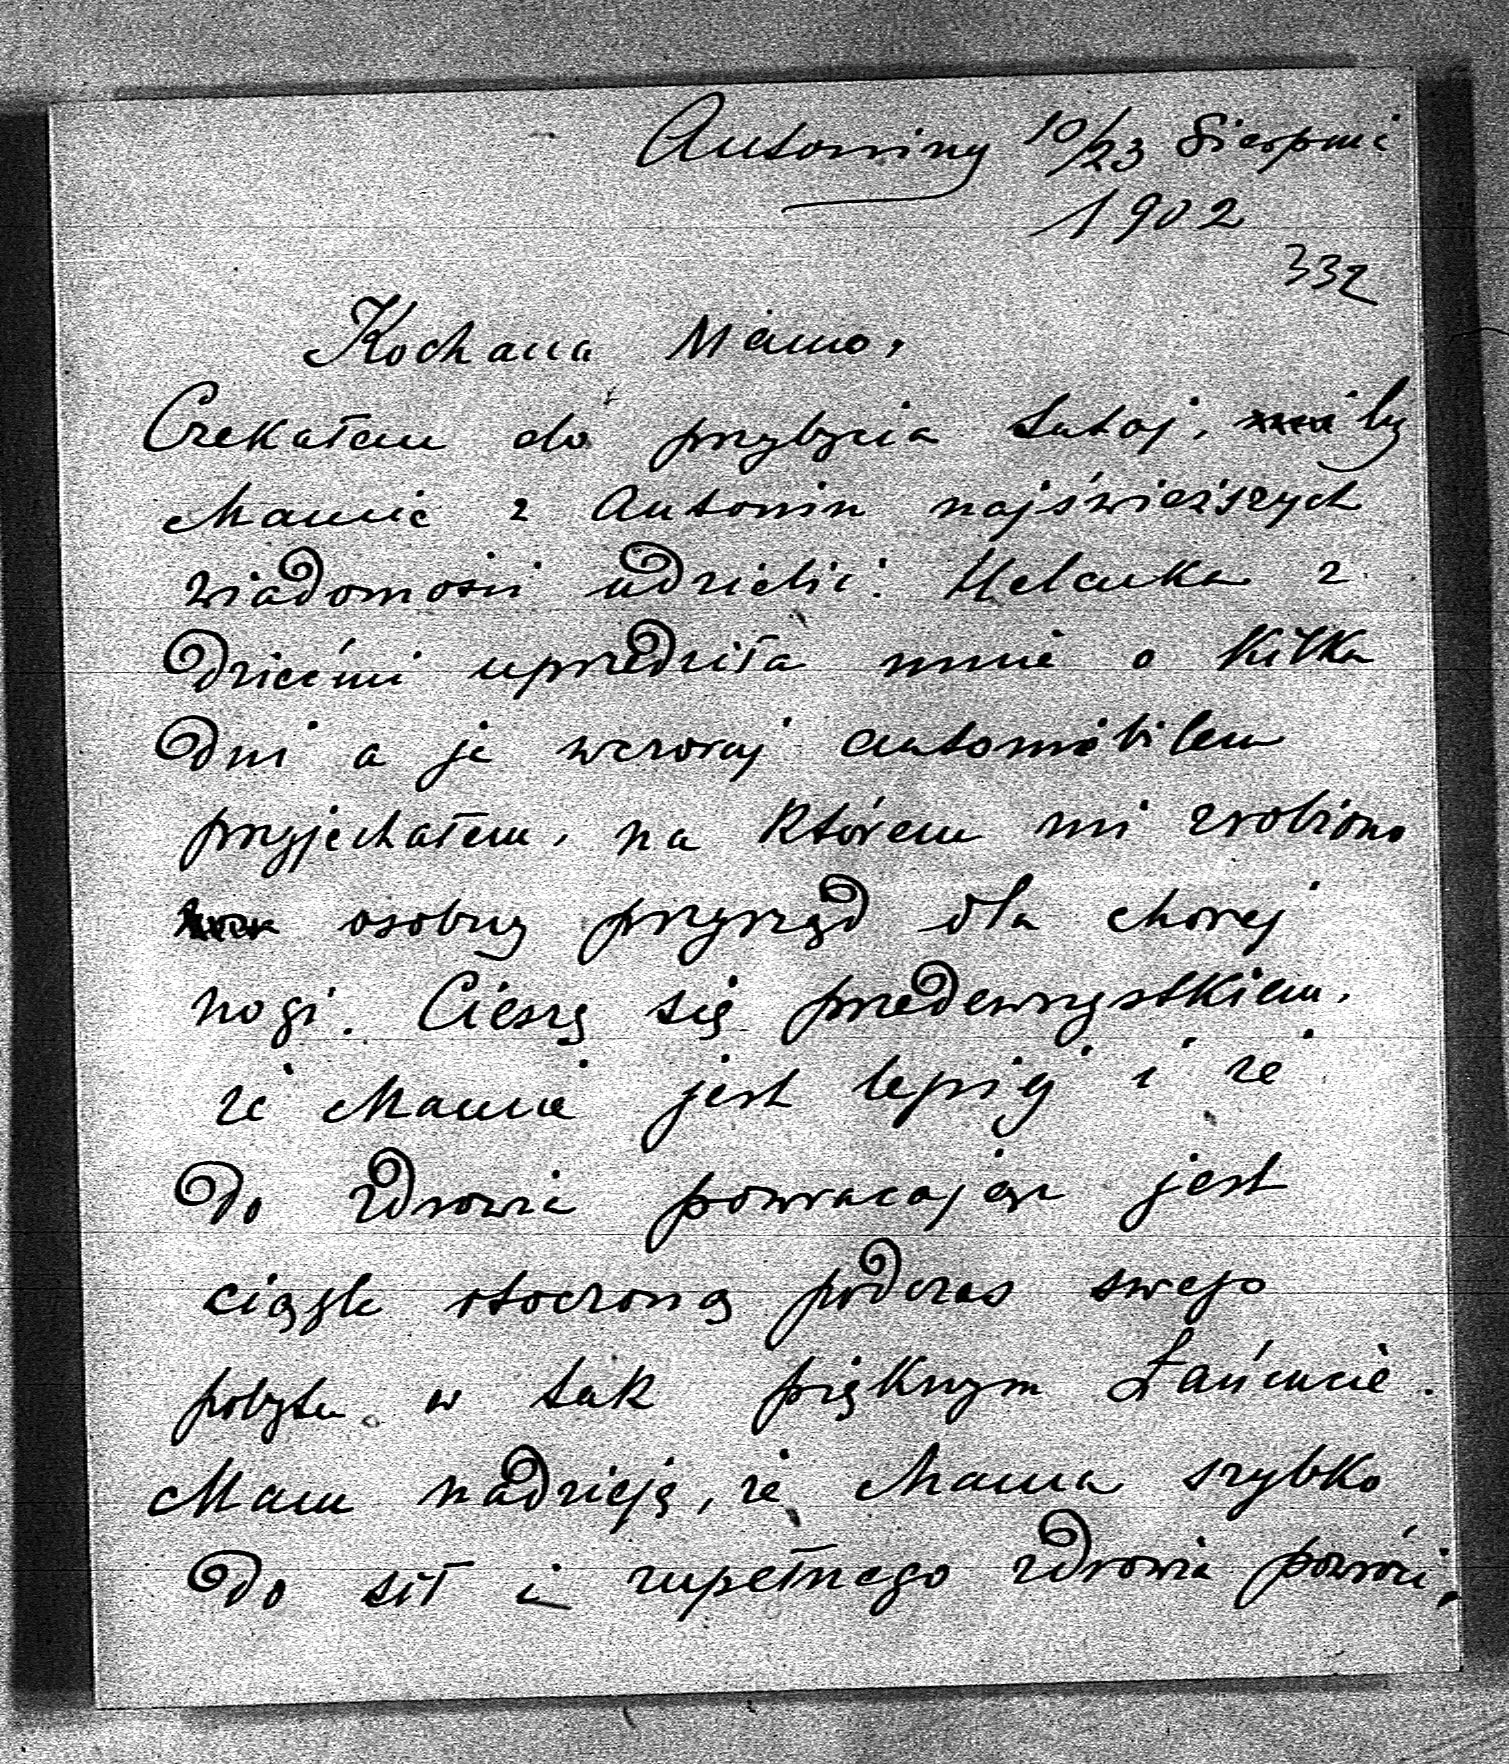 Antoniny 10/23 Sierpnia
1902
332
Kochana Mamo,
Czekałem do przybycia tutaj, by
Mamie z Antonin najświeższych
wiadomości udzielić. Helenka z
Dziećmi uprzedziła mnie o kilka
Dni a ja wczoraj automobilem
przyjechałem, na którem mi zrobiono
osobny przyrząd dla chorej
nogi. Cieszę się przedewszystkiem,
że Mamie jest lepiej i że
Do zdrowia powracając jest
ciągle otoczoną podczas swego
pobytu w tak pięknym Łańcucie.
Mam nadzieję, że Mama szybko
Do sił i zupełnego zdrowia powróci,